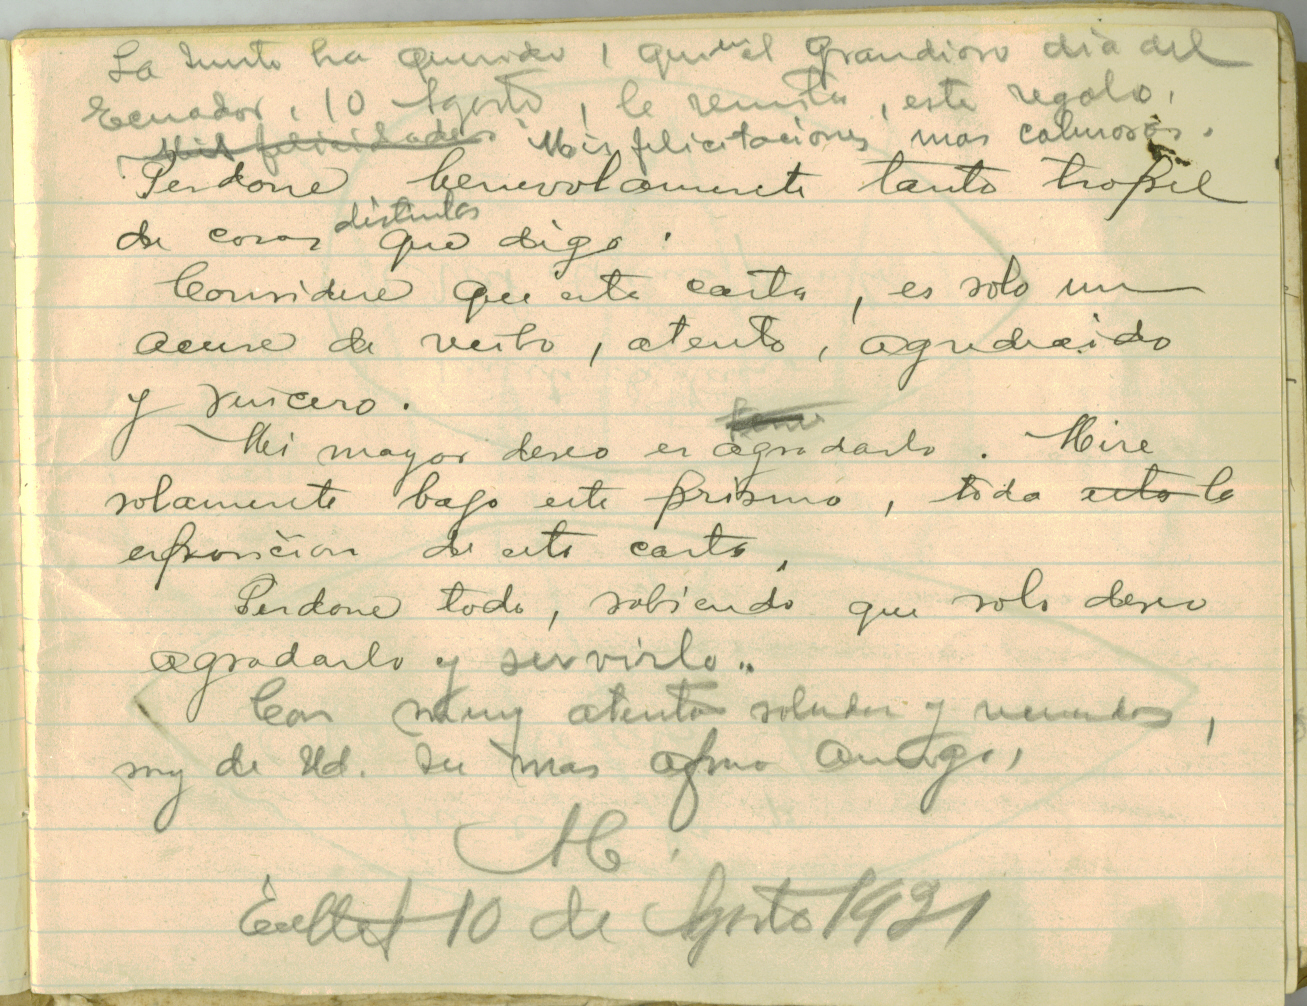 La suerte ha querido, que en el grandioso día del
Ecuador, 10 Agosto, le remita, este regalo.
Mil felicidades Mis felicitaciones mas calurosas.
Perdone benevolamente tanto tropel
de cosas distintas que digo.
Considere que esta carta, es solo un
acuse de recibo, atento, agradecido
y sincero.
Mi mayor deseo es agradarlo. Mire
solamente bajo este prisma, toda esta la
exposicion de esta carta.
Perdone todo, sabiendo que solo deseo
agradarlo y servirlo..
Con muy atentos saludos y recuerdos,
soy de Ud. su mas afmo amigo,
10 de Agosto 1921